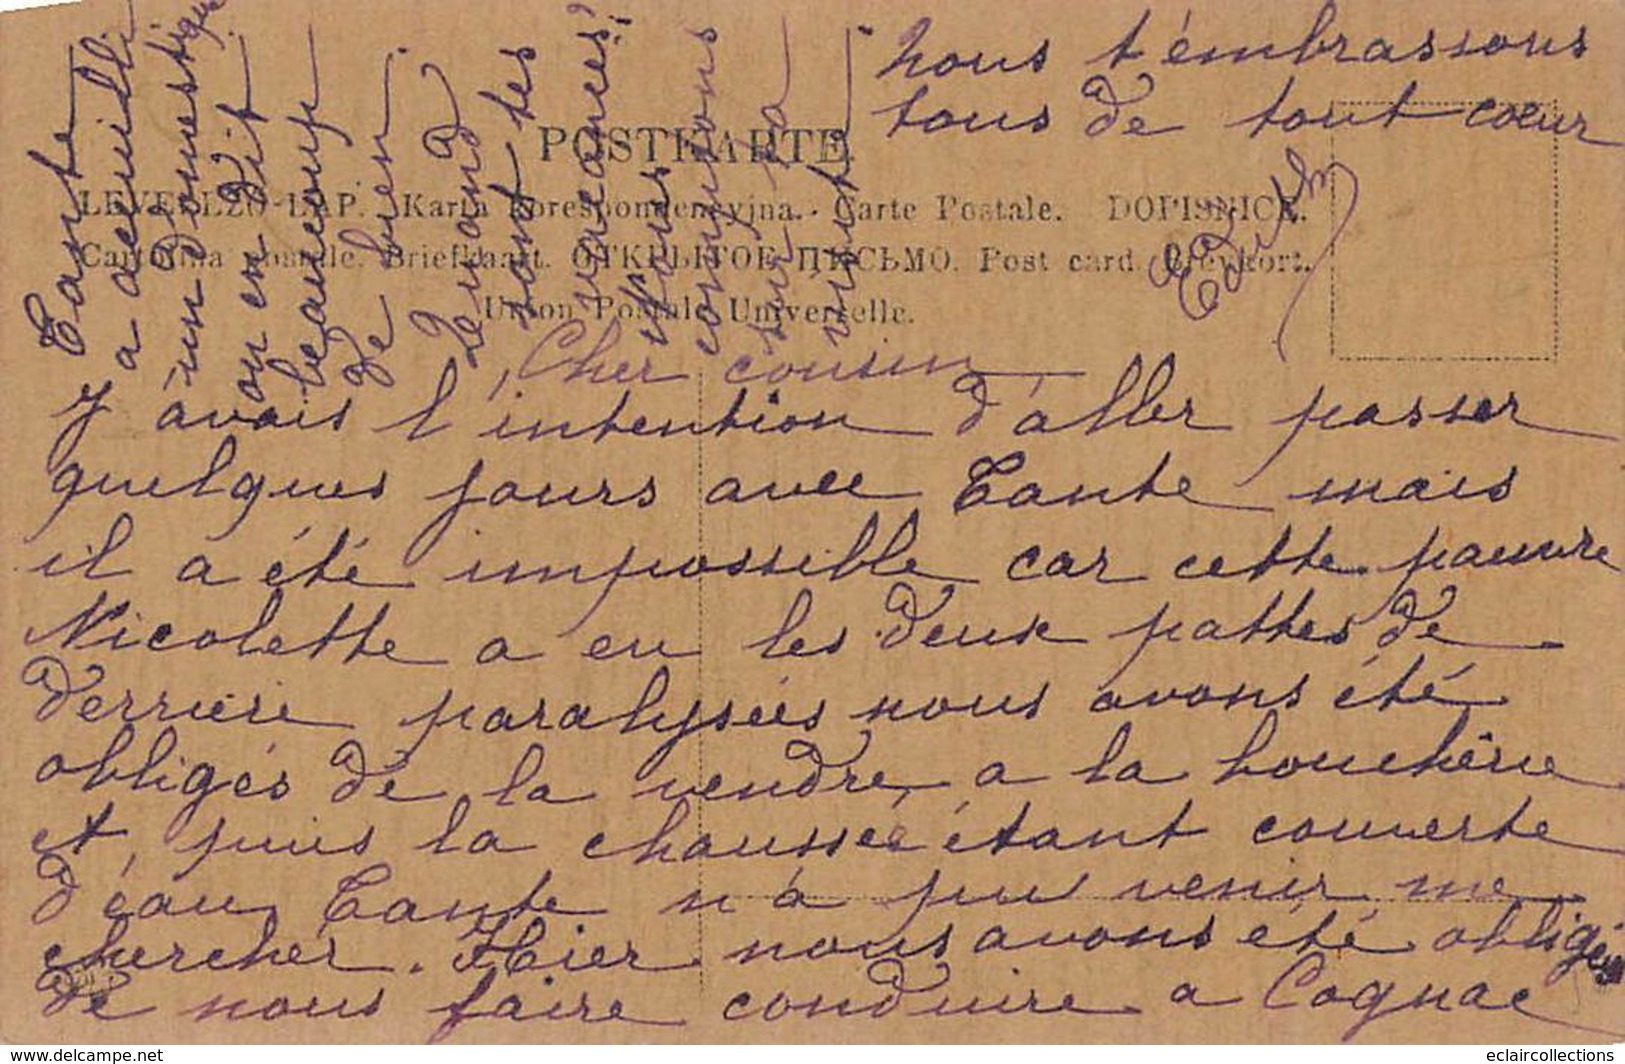 Cher cousin
J'avais l'intention d'aller passer
quelques jours avec Tante mais
il a été impossible car cette pauvre
Nicolette a eu les deux pattes de
derrière paralysées nous avons été
obligés de la vendre a la bouchérie
et puis la chaussée étant couverte
d'éau Tante n'a pu venir me
chercher. Hier nous avons été obligés
de nous faire conduire a Cognac
Tante
a accueilli
un domestique
on en dit
beaucoup
de bien
Quand
sont tes
vacances?
Nous
comptons
sur ta
visite
nous t'émbrassons
tous de tout cœur
Edith
POSTKARTE.
LEVELEZŐ-LAP. Karta korespondencyjna. Carte Postale. DOPISNICE.
Cartolina postale. Briefkaart. ОТКРЫТОЕ ПИСЬМО. Post card. Brevkort.
Union Postale Universelle.
www.delcampe.net
eclaircollections